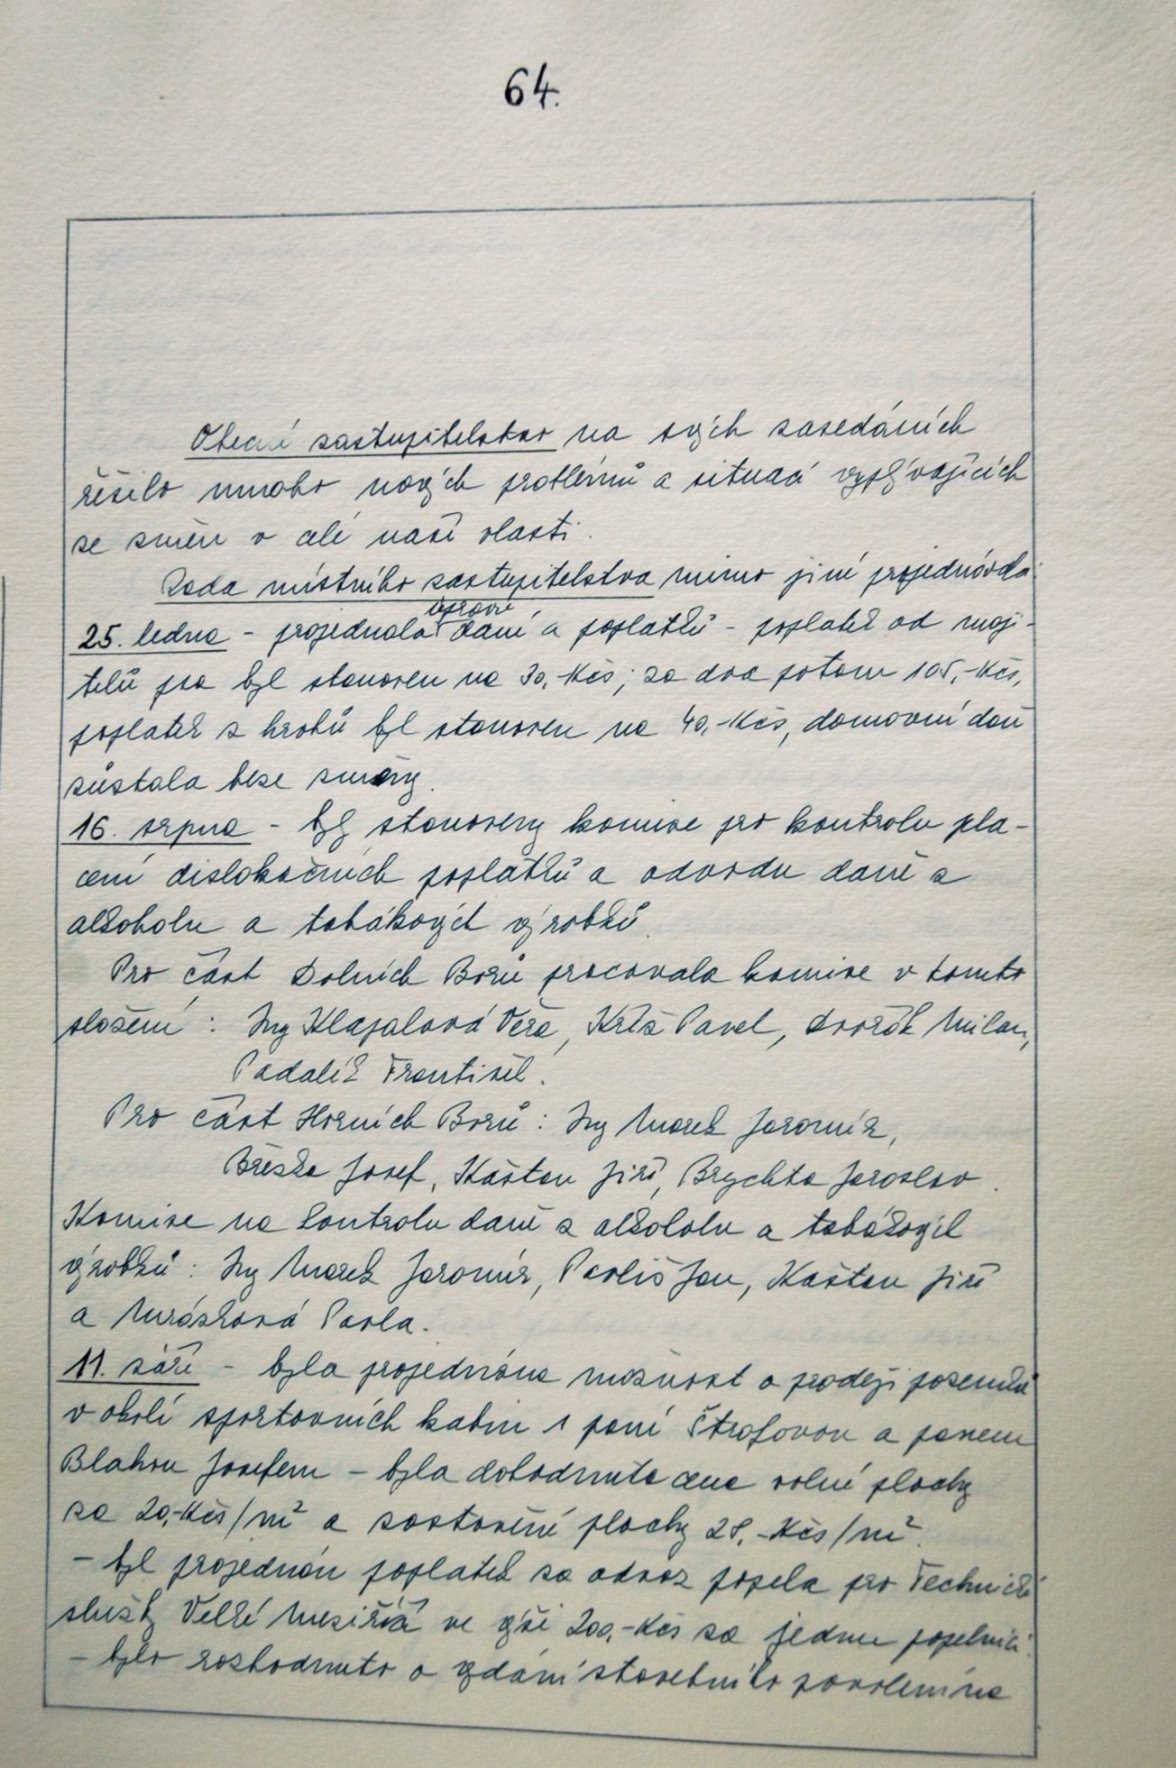 64.
Obecní zastupitelstvo na svých zasedáních
řešilo mnoho nových problémů a situací vyplývajících
ze změn v celé naší vlasti.
Rada místního zastupitelstva mimo jiné projednávala:
úpravu
25. ledna - projednala daní a poplatků - poplatek od maji-
telů psa byl stanoven na 30,-Kčs, za dva potom 105,-Kčs,
poplatek z hrobů byl stanoven na 40,-Kčs, domovní daň
zůstala beze změny.
16. srpna - byly stanoveny komise pro kontrolu pla-
cení dislokačních poplatků a odvodu daně z
alkoholu a tabákových výrobků.
Pro část Dolních Borů pracovala komise v tomto
složení: Ing Klapalová Věra, Kříž Pavel, Dvořák Milan,
Padalík František.
Pro část Horních Borů: Ing Marek Jaromír,
Bříška Josef, Kaštan Jiří, Brychta Jaroslav.
Komise na kontrolu daně z alkoholu a tabákových
výrobků: Ing Marek Jaromír, Pavliš Jan, Kaštan Jiří
a Mrázková Pavla.
11. září - byla projednána možnost o prodeji pozemků
v okolí sportovních kabin s paní Štrofovou a panem
Blahou Josefem - byla dohodnuta cena volné plochy
za 20,-Kčs/m² a zastavěné plochy 28,-Kčs/m².
- byl projednán poplatek za odvoz popela pro Technické
služby Velké Meziříčí ve výši 200,-Kčs za jednu popelnici.
- bylo rozhodnuto o vydání stavebního povolení na